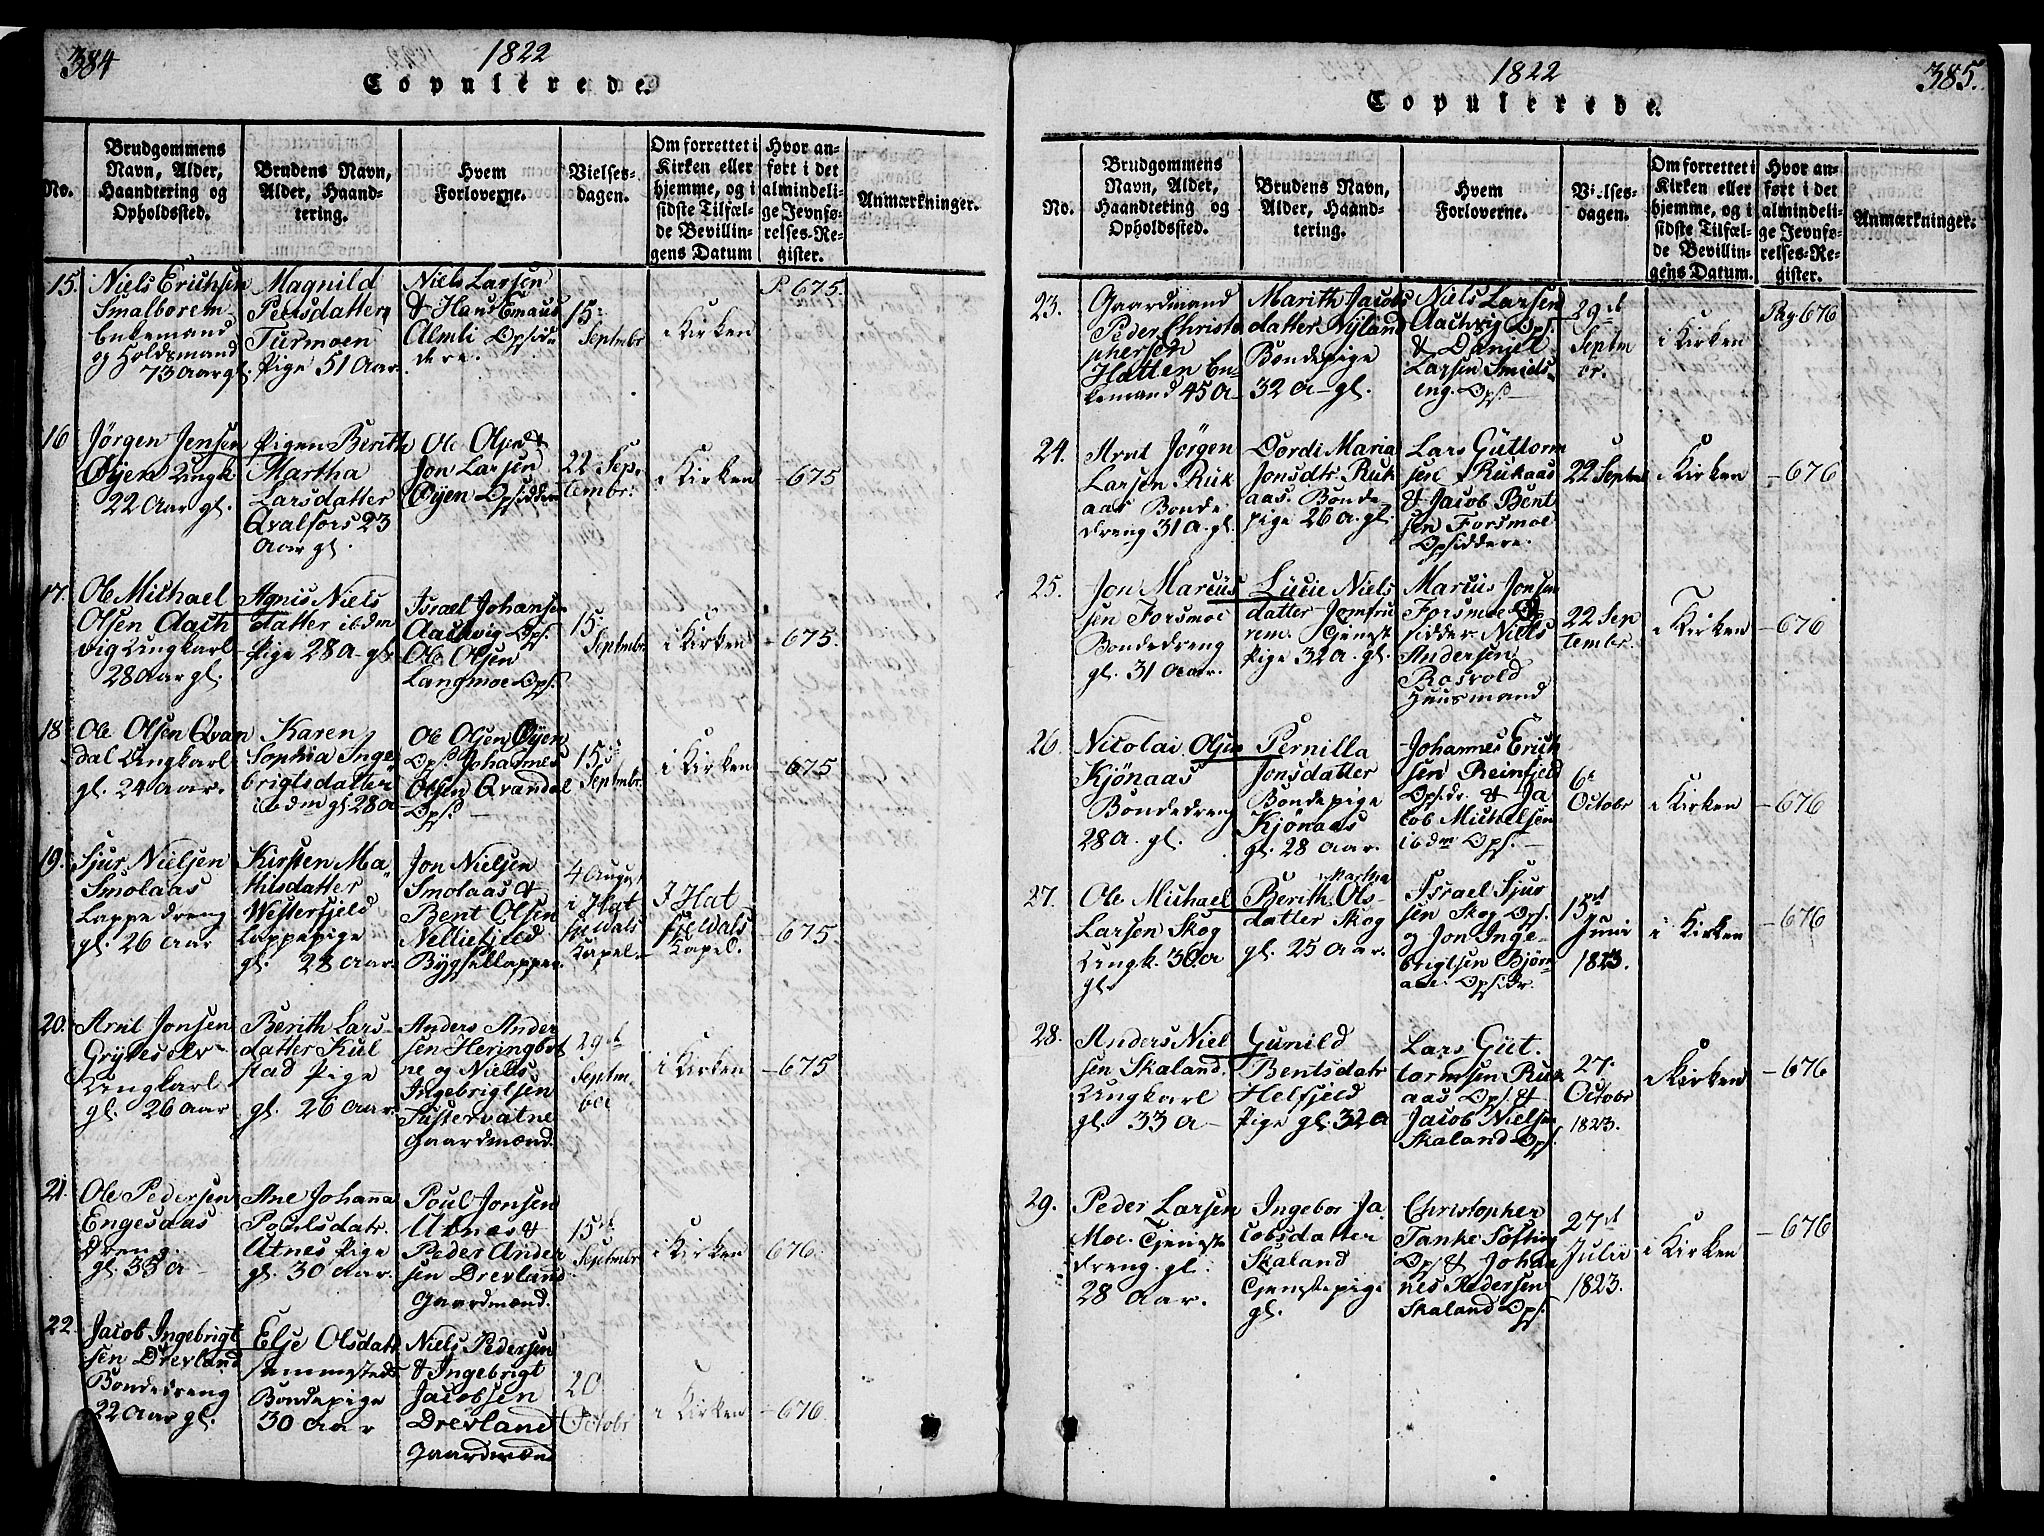 384
1822
Copulerede.
No.
Brudgommens
Navn, Alder,
Haandtering og
Opholdssted.
Brudens Navn,
Alder, Haand-
tering.
Hvem
Forloverne.
Vielses-
dagen.
Om forrettet i
Kirken eller
hjemme, og i
sidste Tilfæl-
de Bevillin-
gens Datum
Hvor an-
ført i det
almindeli-
ge Jevnfø-
relses-Re-
gister.
Anmærkninger.
15.
Niels Erichsen
Smalborem
Enkemand
og Holdsmand
73 Aar gl.
Magnild
Peelsdatter
Turmoen
Pige 51 Aar.
Niels Larsen
& Hans Emaus
Almli Opsid
dere.
15.
Septmbr
i Kirken
P 675.
16
Jörgen Jensen
Øyen Ungk.
22 Aar gl.
Pigen Berith
Martha
Larsdatter
Qvalfors 23
Aar gl.
Ole Olsen &
Jon Larsen
Øyen Opsiddere
22 Sep-
tembr:
i Kirken
- 675
17.
Ole Michael
Olsen Aach
vig Ungkarl
28 Aar gl.
Agnis Niels
datter ibdm
Pige 28 A gl.
Israel Johansen
Aachvig Ops.
Ole Olsen
Langmoe Ops.
15.
Septmbr
i Kirken
- 675.
18
Ole Olsen Qvan
dal Ungkarl
gl. 24 Aar.
Karen
Sophia Inge
brigtsdatter
ibdm gl. 28 A
Ole Olsen Øyen
Ops. Johannes
Olsen Qvandal
Ops.
15de
Septmbr.
i Kirken
- 675
19.
Sjur Nielsen
Smolaas
Lappe dreng
gl. 26 Aar
Kirsten Ma-
thisdatter
Westerfjeld
Lappepige
gl. 28 Aar.
Jon Nielsen
Smolaas &
Bent Olsen
Nelliefjeld
Bygsellapper.
4 August
i Hat
fjeldals
Kapel.
I Hat
fjeldals
Kapel.
- 675.
20.
Arnt Jonsen
Grytes elv
Ungkarl
gl. 26 Aar
Berith Lars-
datter Kul
stad Pige
gl. 26 Aar.
Anders Ander
sen Heringbot
ne og Niels
Ingebrigtsen
Sustervatne
Gaardmænd.
29de
Septm-
ber
i Kirken
- 675
21.
Ole Pedersen
Engesaas
dreng.
gl. 35 A
Ane Johanna
Poulsdatr.
Utnes Pige
gl. 30 Aar.
Poul Jonsen
Utnes &
Peder Ander
sen Drevland
Gaardmænd.
15de
Septmbr
i Kirken
676.
22.
Jacob Ingebrigt
sen Drevland
Bondedreng
22 Aar gl.
Else Olsdatt
Bondepige
30 Aar
Niels Pedersen
& Ingebrigt
Jacobsen
Drevland
Gaardmænd
20
Octobr
i Kirken
- 676.
385.
1822
Copulerede.
No.
Brudgommens
Navn, Alder,
Haandtering og
Opholdssted.
Brudens Navn,
Alder, Haand-
tering.
Hvem
Forloverne.
Vielses-
dagen.
Om forrettet i
Kirken eller
hjemme, og i
sidste Tilfæl-
de Bevillin-
gens Datum.
Hvor an-
ført i det
almindeli-
ge Jevnfø-
relses-Re-
gister.
Anmærkninger.
23.
Gaardmand
Peder Christo
phersen
Hatten En-
kemand 45 A
Marith Jacobs
datter Nyland
Bondepige
32 A gl.
Niels Larsen
Aachvig Ops.
& Daniel
Larsen Smeds-
eng. Ops.
29de
Septm
br.
i Kirken
Rg 676
24.
Arnt Jörgen
Larsen Ruk
aas Bonde
dreng 31 A. gl.
Dordi Maria
Jonsdtr. Ruk
aas. Bonde
pige 26 A. gl.
Lars Guttorm
sen Rukaas
& Jacob Bent
sen Forsmoe
Opsiddere.
22 Septm
i Kirken
- 676
25.
Jon Marcus
sen Forsmoe
Bondedreng
gl. 31 Aar.
Lucie Niels
datter Jomfru
rem. Tjenest
Pige 32 A. gl.
Marcus Jonsen
Forsmoe Op
sidder Niels
Andersen
Rosvold
Huusmand
22 Sep
tembr.
i Kirken
- 676
26.
Nicolai Olsen
Kjönaas
Bondedreng
28 A. gl.
Pernilla
Jonsdatter
Bondepige
Kjönaas
gl. 28 Aar.
Johannes Erich
sen Reinfjeld
Opsdr. & Ja
cob Michelsen
ibdm Ops.
6te
Octobr
i Kirken
- 676
27.
Ole Michael
Larsen Skog
Ungk. 30 A
gl.
Martha
Berith Ols-
datter Skog
gl. 25 Aar.
Israel Sjur
sen Skog Ops.
og Jon Inge-
brigtsen Björn
aae. Opsidr.
15de
Juni
1823.
i Kirken
- 676
28.
Anders Niel
sen Skaland.
Ungkarl
gl. 33 A
Gunild
Bentsdatr
Helfjeld
Pige gl. 32 A
Lars Gut-
tormsen Ruk
aas Ops. &
Jacob Nielsen
Skaland Ops.
27.
Octobr
1823.
i Kirken
- 676
29.
Peder Larsen
Moe. Tjeneste
dreng. gl.
28 Aar.
Ingebor Ja
cobsdatter
Skaland
Tjenstepige
gl.
Christopher
Tanke Softing
Ops & Johan
nes Pedersen
Skaland Ops.
27de
Julii
1823.
i Kirken
- 676